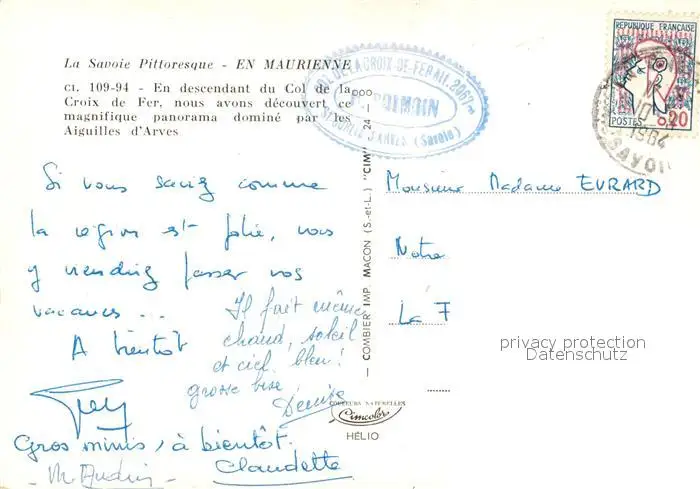 La Savoie Pittoresque - EN MAURIENNE
CI. 109-94 - En descendant du Col de la
Croix de Fer, nous avons découvert ce
magnifique panorama dominé par les
Aiguilles d'Arves
COL DE LA CROIX-DE-FER ALT. 2067 m
St SORLIN D'ARVES (Savoie)
REPUBLIQUE FRANÇAISE
POSTES 0,20
1964
SAVOIE
Si vous saviez comme
la région est jolie, vous
y viendriez passer vos
vacances ...
A bientôt
Il fait même
chaud, soleil
et ciel bleu!
grosse bise
Denise
Gros mimis, à bientôt.
Claudette
COMBIER IMP. MACON (S.-et-L.) "CIM"
COULEURS NATURELLES
Cimcolor
HÉLIO
Monsieur Madame EVRARD
Notre
La F
privacy protection
Datenschutz